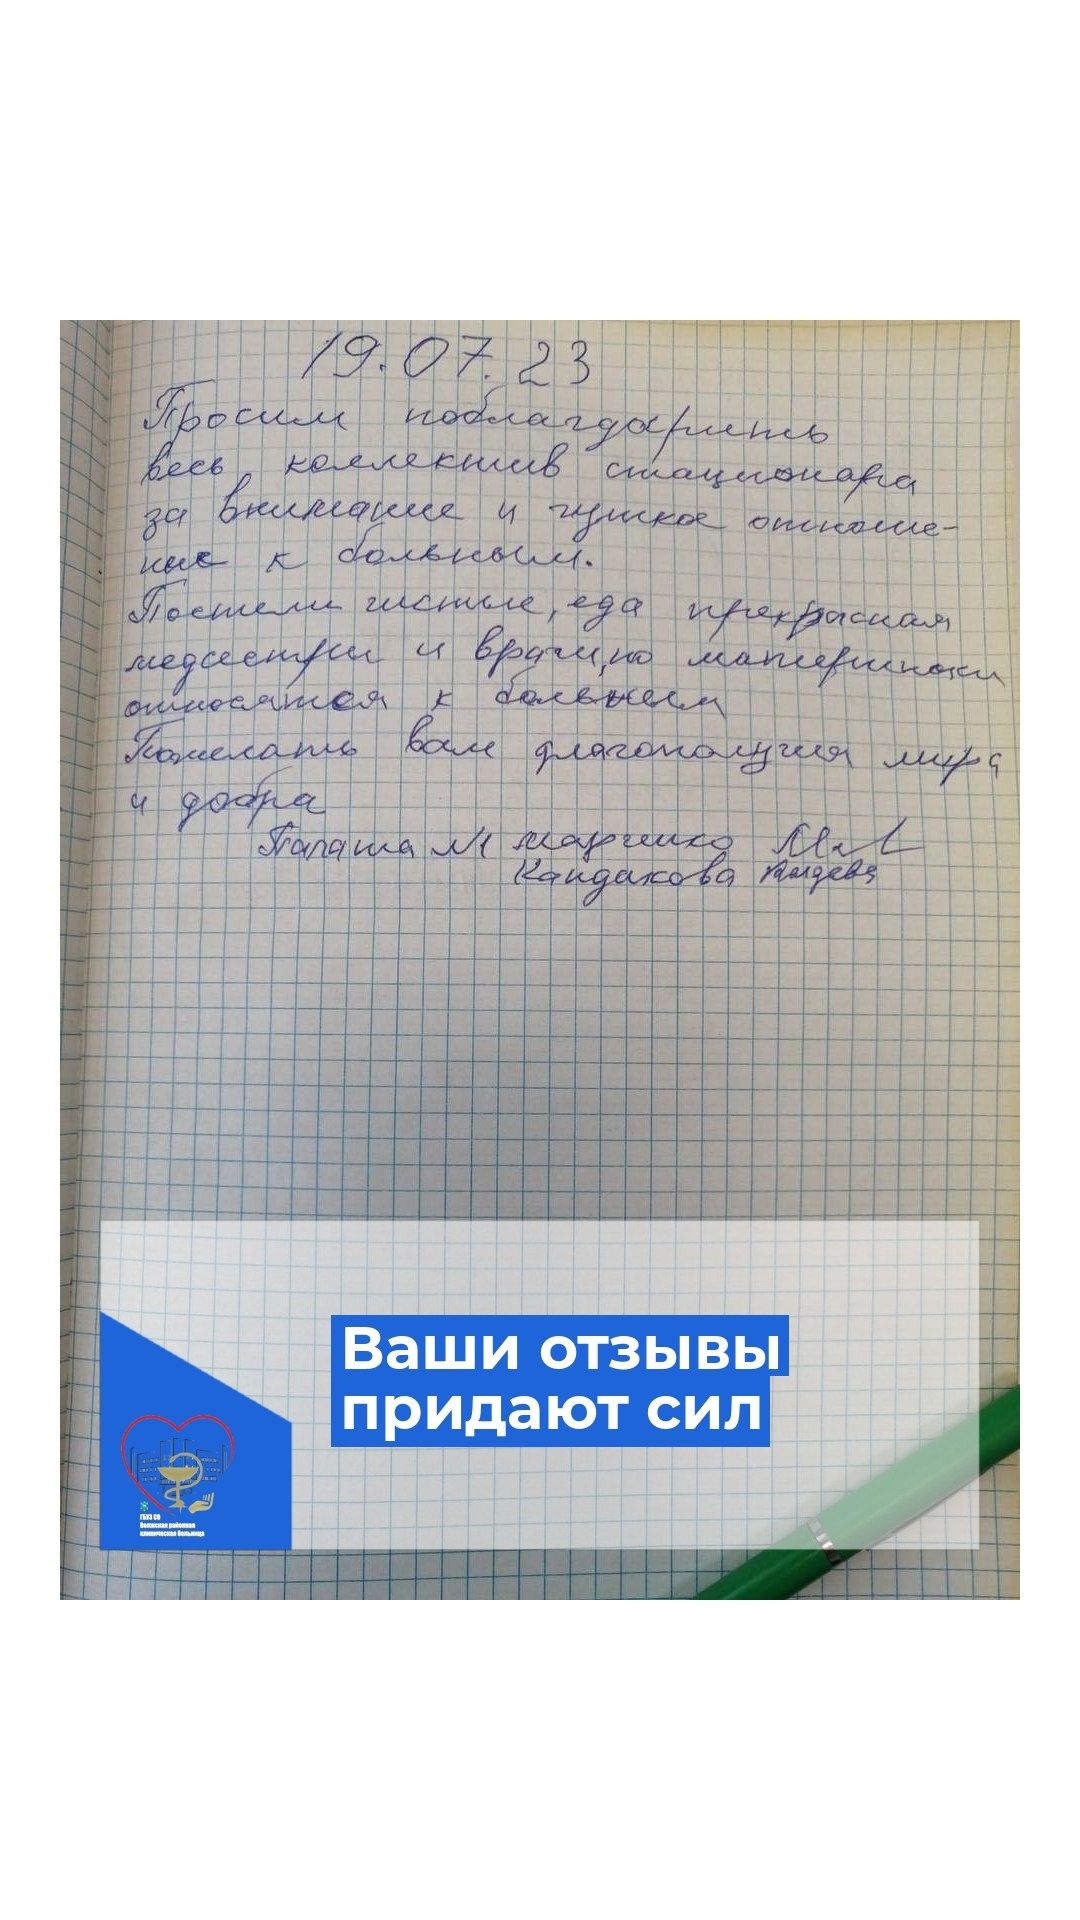 19.07.23
Просим поблагдарить
весь коллектив стационара
за внимание и чуткое отноше-
ние к больным.
Постели чистые, еда прекрасная
медсестры и врачи, по матерински
относятся к больным
Пожелать вам благополучия мира
и добра
Палата №1 Марчико
Кандакова
Ваши отзывы
придают сил
ГБУЗ СО
Волжская районная
клиническая больница